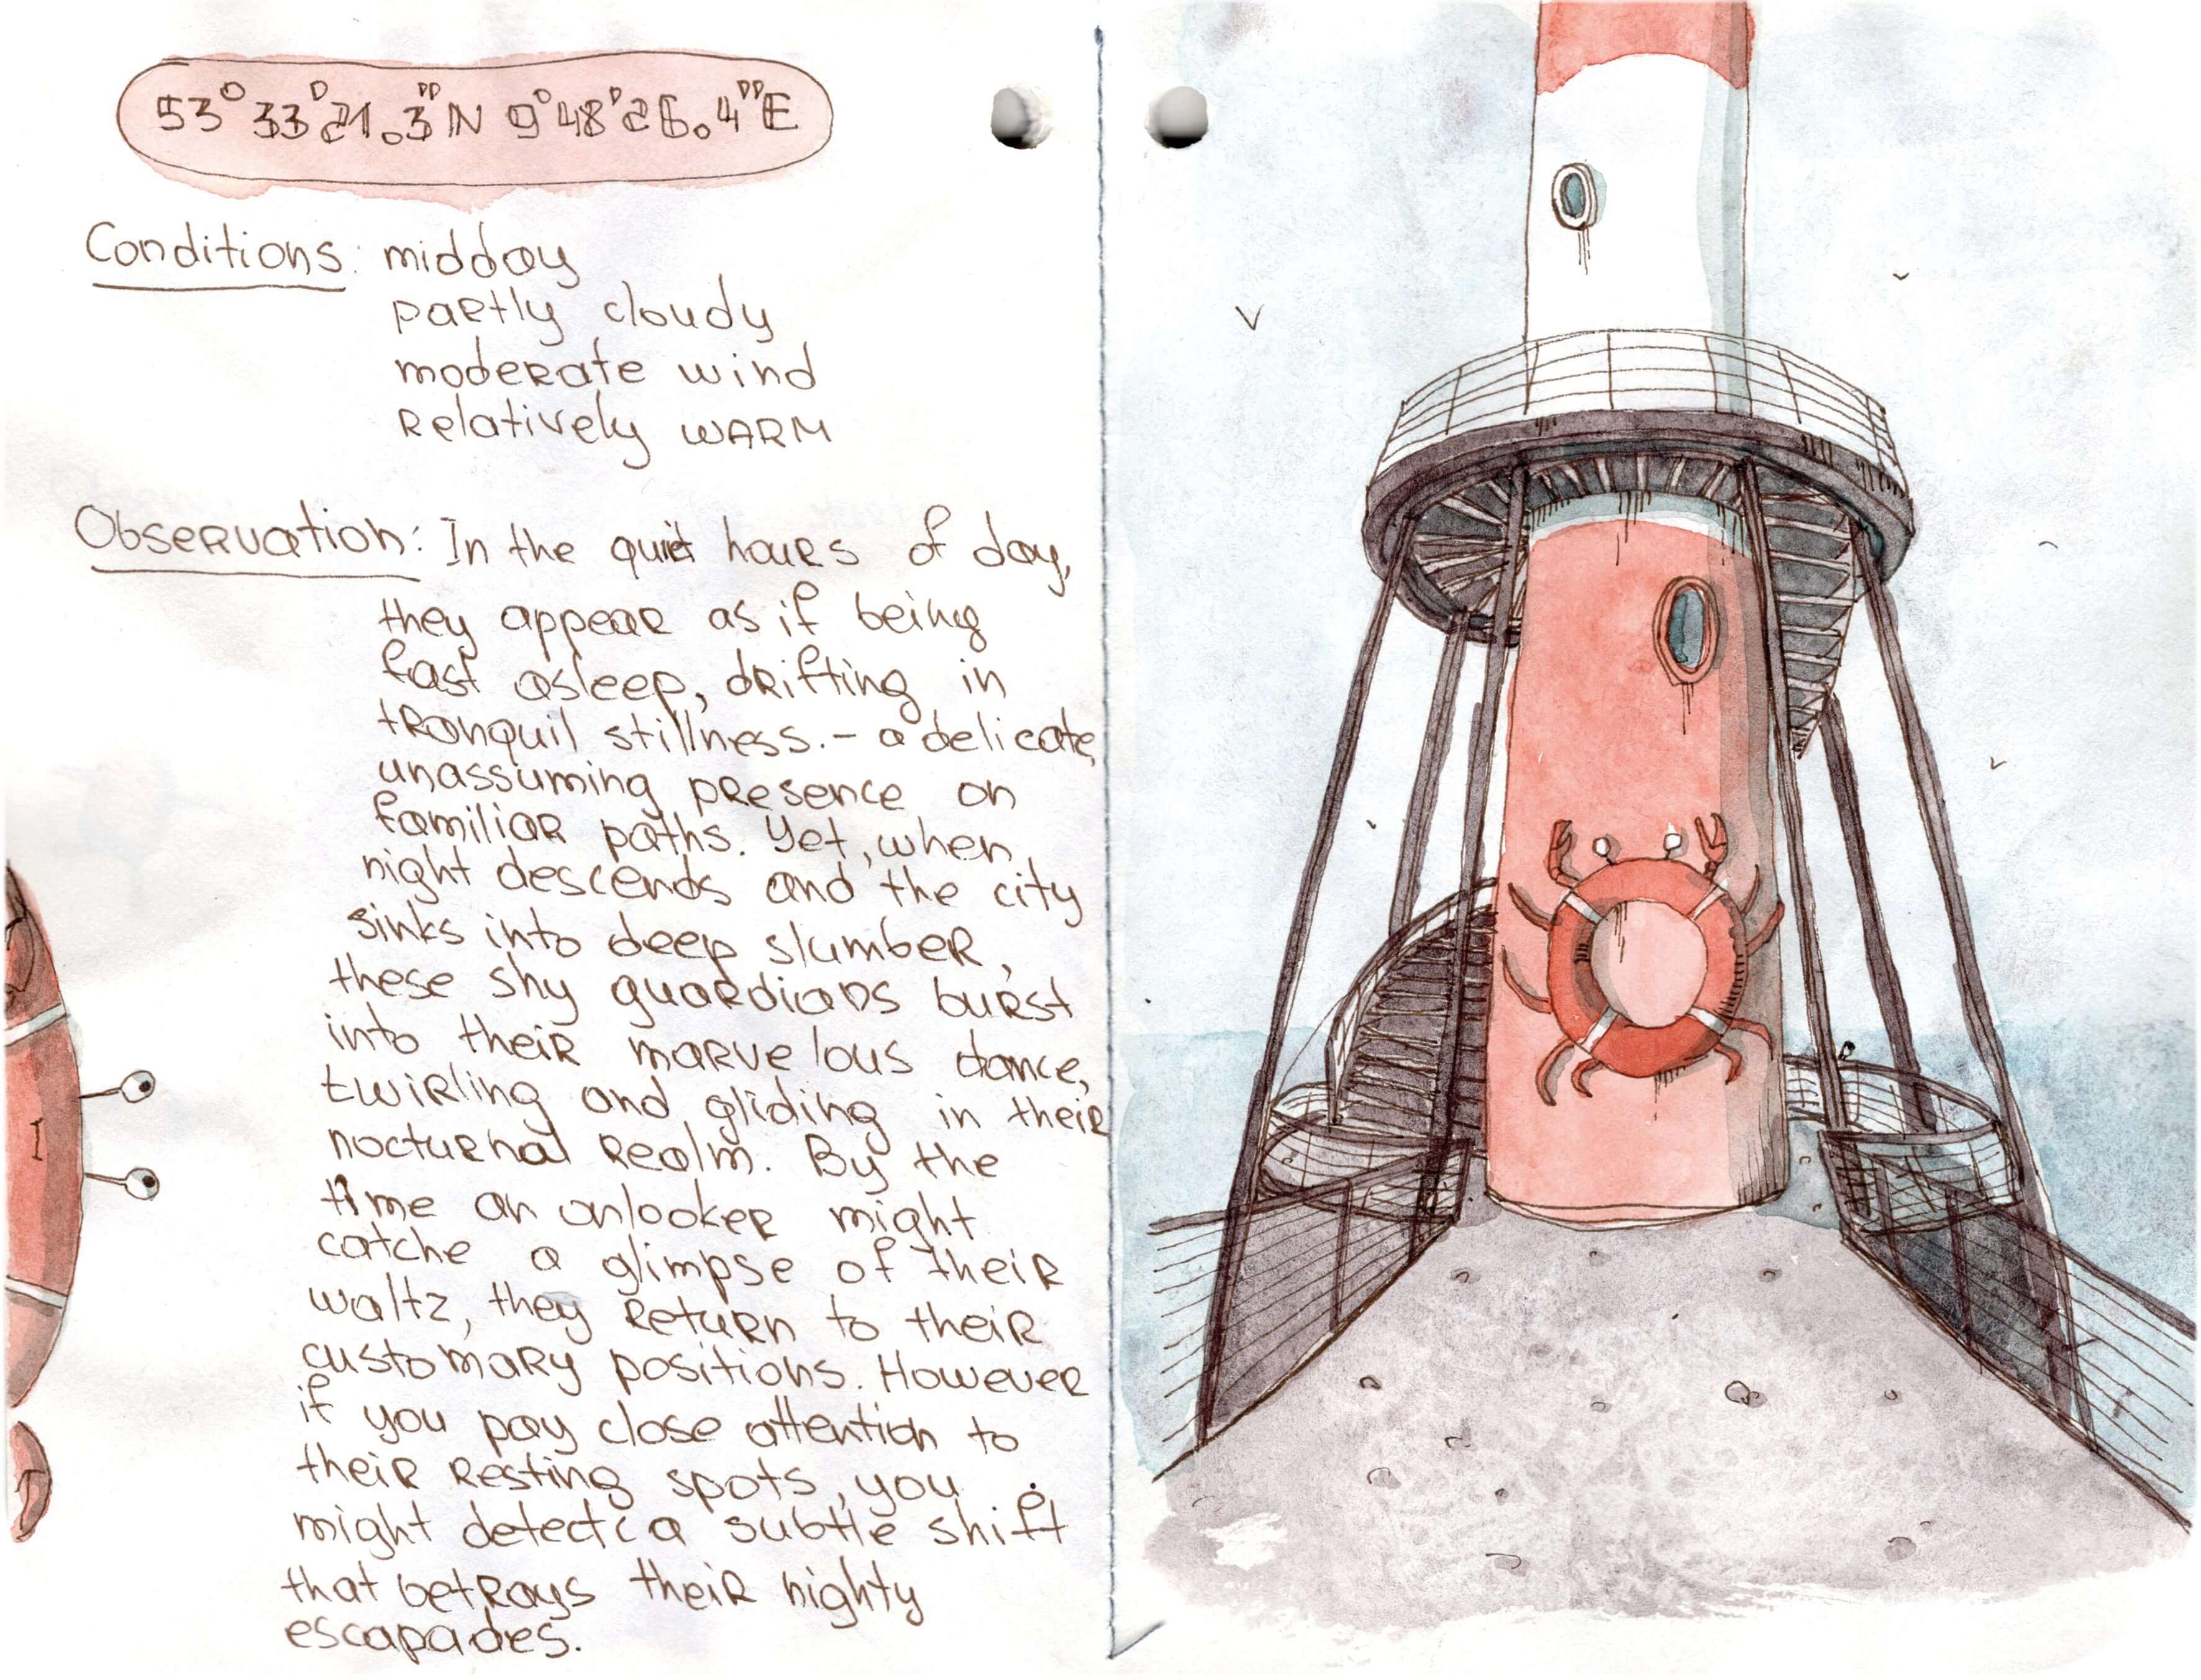 53°33'21.3"N 9°48'26.4"E
Conditions: midday
partly cloudy
moderate wind
Relatively WARM
Observation: In the quiet hours of day,
they appear as if being
fast asleep, drifting in
tranquil stillness. - a delicate,
unassuming presence on
familiar paths. Yet, when
night descends and the city
sinks into deep slumber,
these shy guardians burst
into their marvelous dance,
twirling and gliding in their
nocturnal realm. By the
time an onlooker might
catche a glimpse of their
waltz, they return to their
customary positions. However
if you pay close attention to
their resting spots, you
might detect a subtle shift
that betrays their nighty
escapades.